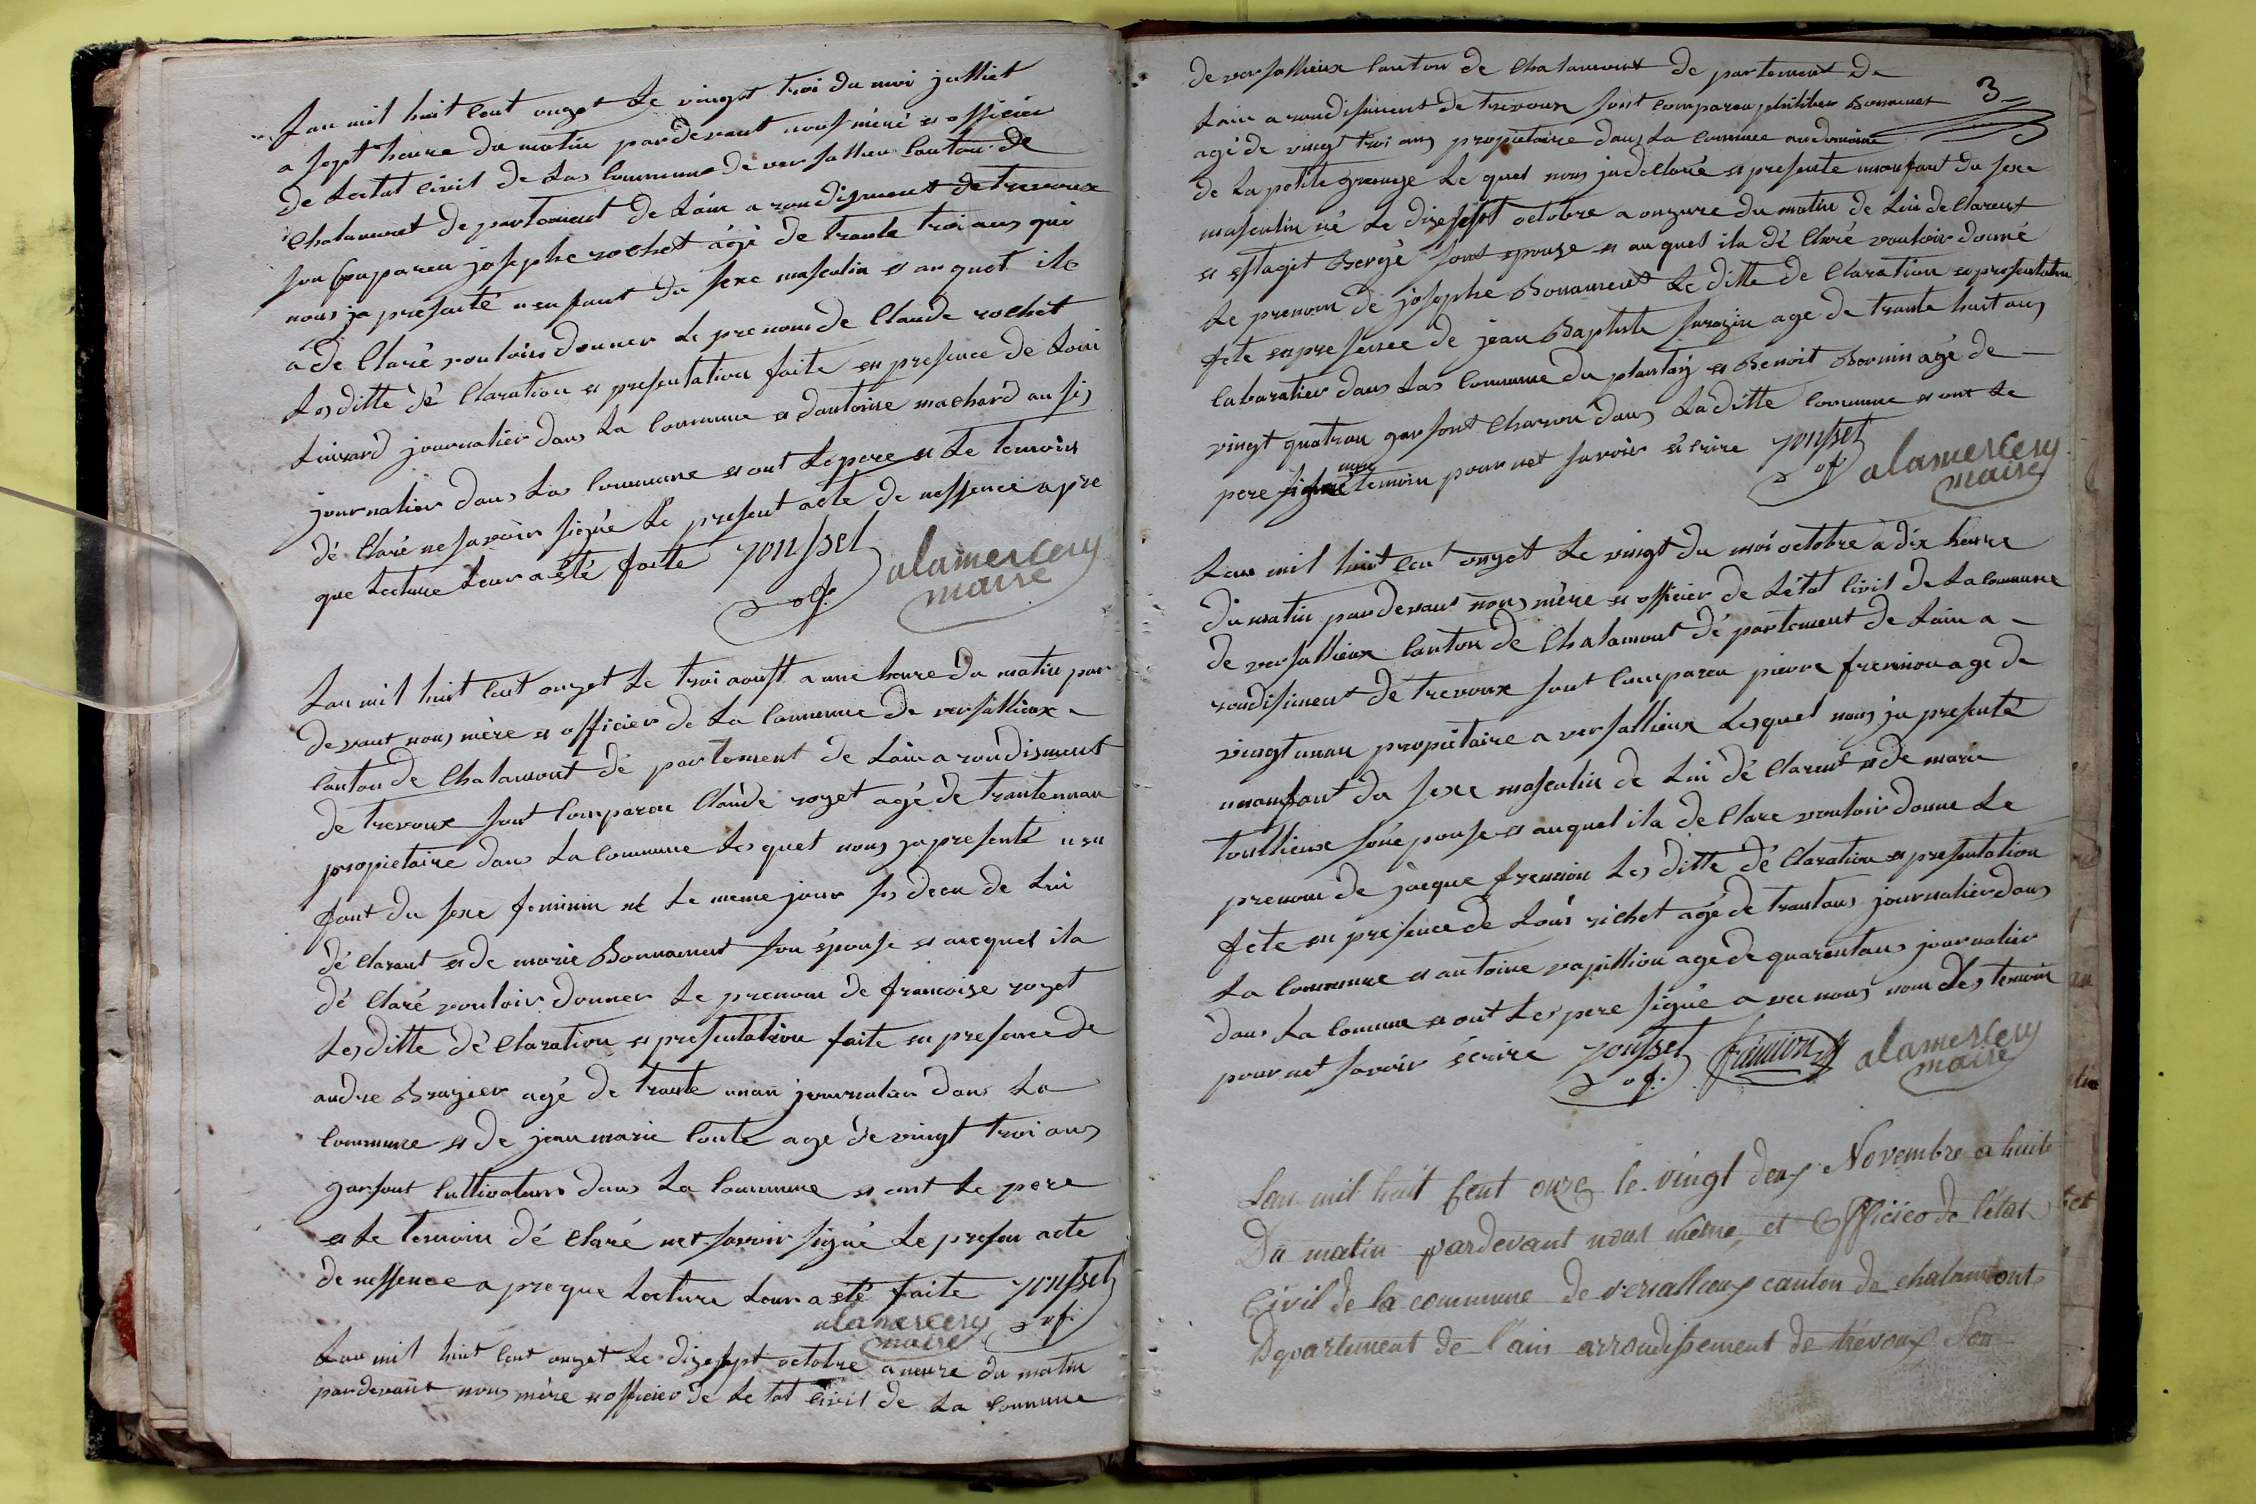 Lan mil huit Cent onzet Le vingt troi du moi julliet
a sept heure du matin pardevant nous mère et officier
de Lactat Civil de Las Commune de versallieu Canton de
Chalamont de partement de Lain a rondisment de trevoux
son Compareu josephe rochet âgé de trante troi ans qui
nous ja presanté unenfant du sexe masculin et auquel ila
a de Claré vouloir donner Le prenom de Claude rochet
Les ditte dé Claration et presentation faite en presence de Loui
Luizard journalier dans La Commune et dantoine machard ausis
journalier dans Las Commune et ont Lepere et Le temoins
dé Claré ne savoir signé Le present acte de nessence apre
que Lecture Leur a été faite jousset alamercery
of maire
Lan mil huit Cent onzet Le troi aoust a une heure du matin par
devant nous mère et officier de La Commune de versallieux
Canton de Chalamont dé partement de Lain a rondisment
de trevoux sont Compareu Claude rozet agé de trantunan
propietaire dans La Commune Lesquel nous ja presenté unen
fant du sexe feminin né Le meme jour de Lui
dé Clarant et de marie Bonnament son épouse et auquel ila
dé Claré vouloir donner Le prenom de francoise rozet
Les ditte dé Claration et presentation faite en presence de
andre Brazier agé de trante unan journalier dans La
Commune et de jean marie Conte age de vingt troi ans
garsont Cultivateur dans La Commune et ont Le pere
et Le temoin dé Claré net savoir signé Le presen acte
de nessence a pre que Lecture Leur a été faite jousset
alamercery of
maire
Lan mil huit Cent onzet Le dizesept octobre a neure du matin
pardevant nous mère et officier de Le tat Civil de La Commune
3
de versallieux Canton de Chalamont de partement de
Lain a rondisiment de trevoux sont Compareu philiber Bonnament
agé de vingt troi ans propietaire dans La Commune audomaine
de La petite grange Le quel nous ja de Claré et presente unenfant du sexe
masculin né Le dizesept octobre a onzure du matin de Lui de Clarent
et Bergé sont epouse et auquel ila dé Claré vouloir donné
Le prenom de josephe Bonnament Le ditte de Claration et presentation
fete enpresence de jean Baptiste Sarazin age de trante huit ans
Cabaratier dans Las Commune du plantay et Benoit Bonnin âgé de
vingt quatran garsont Charon dans La ditte Commune et ont Le
pere signé temoin pour net savoir écrire jousset alamercery
of maire
Lan mil huit Cent onzet Le vingt du moi octobre a dix heure
du matin pardevant nous mère et officier de Létat Civil de La Commune
de versallieux Canton de Chalamont dé partement de Lain a
rondisiment de trevoux sont Compareu pierre fremion age de
vingtunan propietaire a versallieux Lesquel nous ja presenté
unenfant du sexe masculin de Lui dé Clarent et de marie
toullieux soné pouse et auquel ila de Clare vouloir donne Le
prenom de jacque fremion Les ditte dé Claration et presentation
fete en presence de Loui richet agé de trantans journalier dans
La Commune et antoine vapillion age de quarantans journalier
dans La Commune et ont Les pere signé a vec nous non Les temoin
pour net savoir écrire jousset fremion alamercery
of maire
Lan mil huit Cent onze le vingt deux Novembre a huite
Du matin pardevant nous mème, et Officier de l'état
Civil de la commune de versallieux canton de chalamont
Departement de l'ain arrondissement de trévoux son